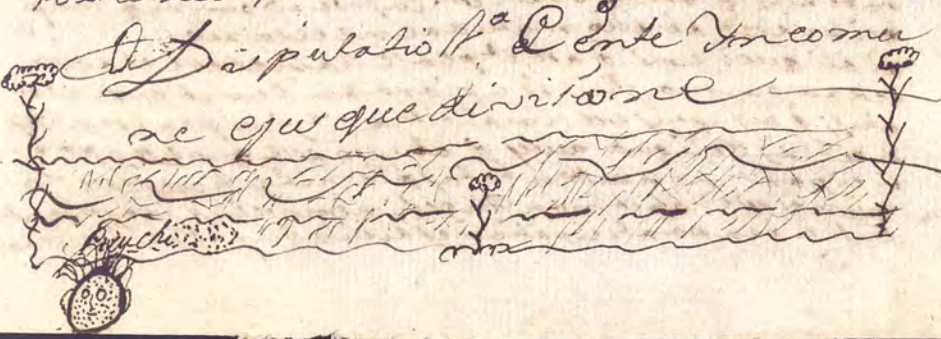 Disputatio 1ª de Ente Yn comu
ne ejusque divisione